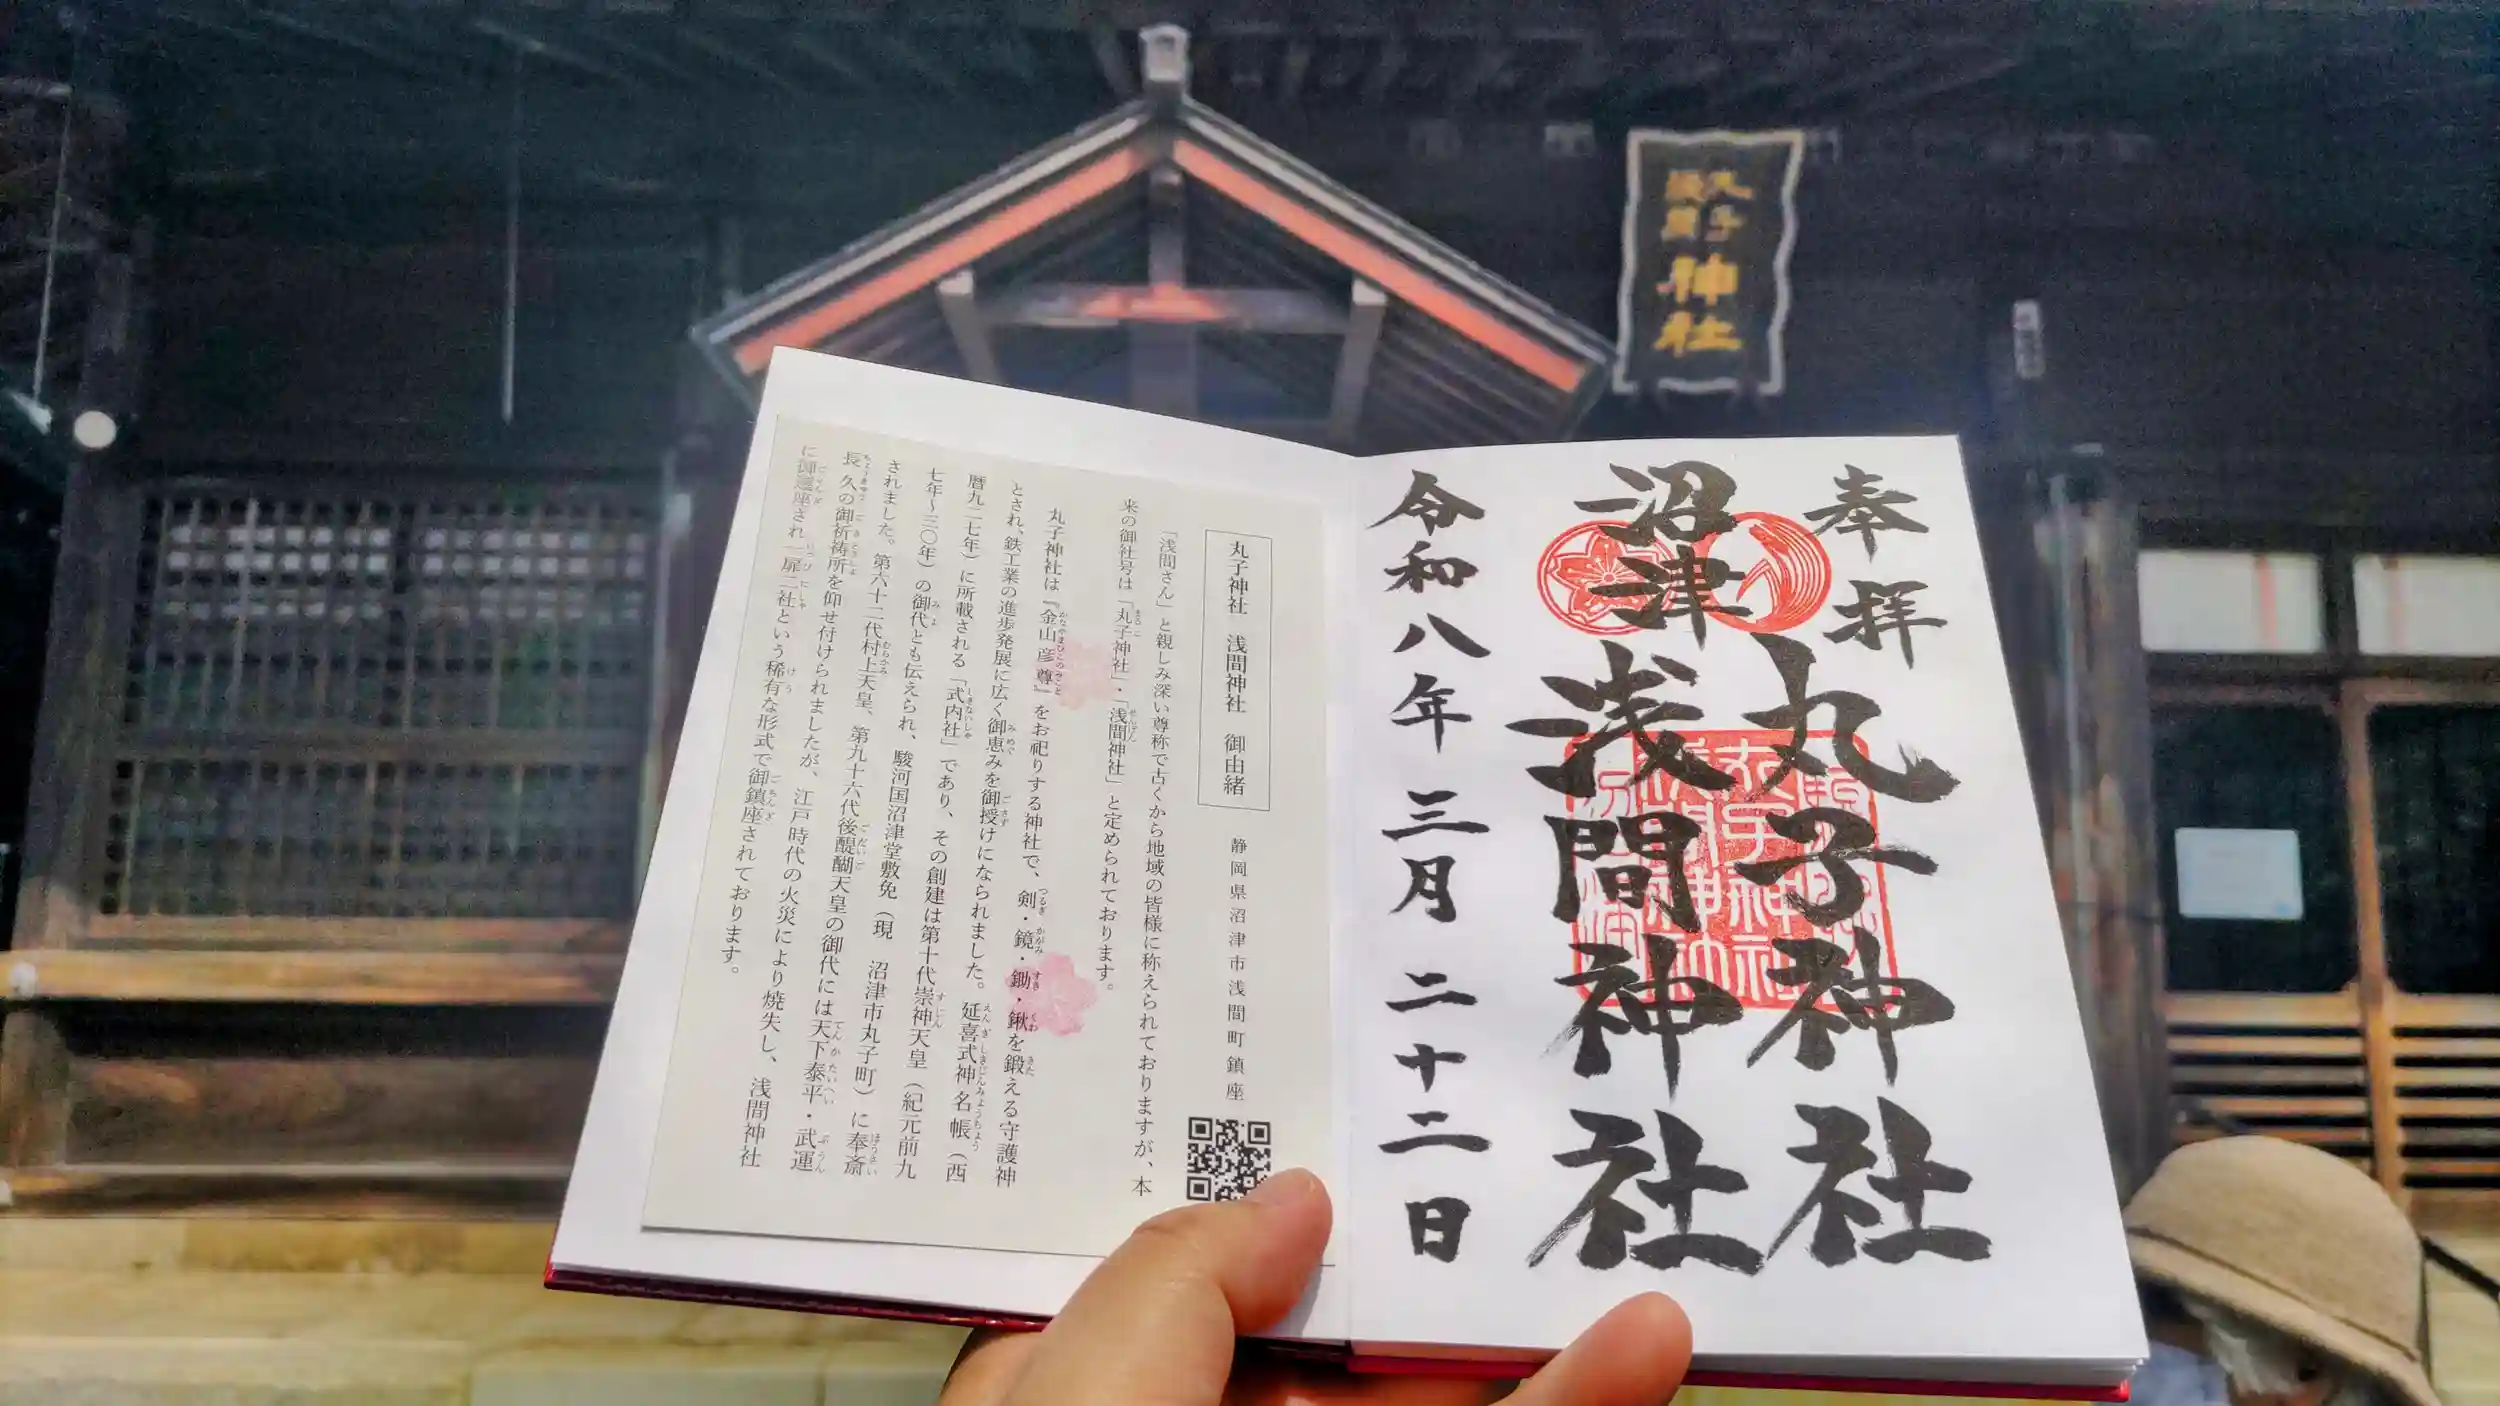 丸子
浅間
神社
奉拝
丸子神社
沼津
浅間神社
令和八年三月二十二日
丸子神社 浅間神社 御由緒
静岡県沼津市浅間町鎮座
「浅間さん」と親しみ深い尊称で古くから地域の皆様に称えられておりますが、本
来の御社号は「丸子神社」・「浅間神社」と定められております。
丸子神社は『金山彦尊』をお祀りする神社で、剣・鏡・鋤・鍬を鍛える守護神
とされ、鉄工業の進歩発展に広く御恵みを御授けになられました。延喜式神名帳（西
暦九二七年）に所載される「式内社」であり、その創建は第十代崇神天皇（紀元前九
七年～三〇年）の御代とも伝えられ、駿河国沼津堂敷免（現 沼津市丸子町）に奉斎
されました。第六十二代村上天皇、第九十六代後醍醐天皇の御代には天下泰平・武運
長久の御祈祷所を仰せ付けられましたが、江戸時代の火災により焼失し、浅間神社
に御遷座され一扉二社という稀有な形式で御鎮座されております。